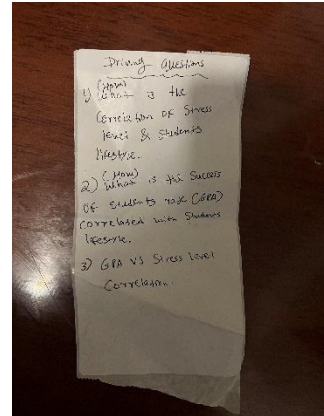 Driving Questions
(How)
1) What is the
Correlation of Stress
level & Students
lifestyle.
(How)
2) What is the Success
of students rate (GPA)
correlated with Students
lifestyle.
3) GPA VS Stress level
Correlation.